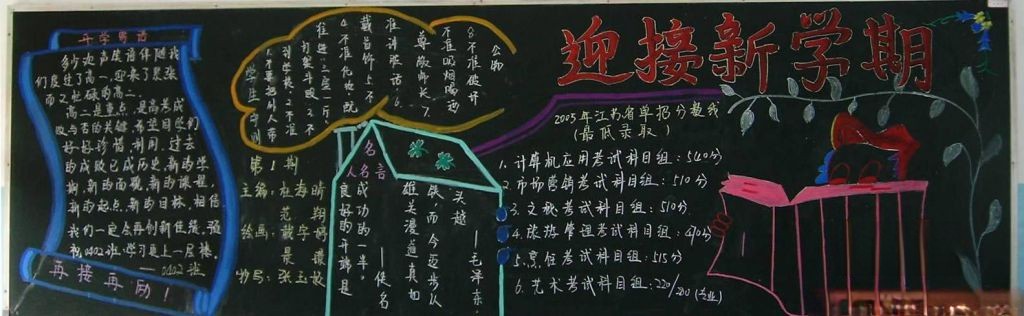 迎接新学期
开学寄语
多少欢声笑语伴随我
们度过了高一,迎来了紧张
而又忙碌的高二。
高二是重点,是高考成
败与否的关键,希望同学们
好好珍惜、利用。过去
的成败已成历史,新的学
期,新的面貌,新的课程,
新的起点,新的目标,相信
我们一定会再创新佳绩,预
祝0402班,学习更上一层楼。
——0402班
再接再励!
学生守则
1.不要把外人带
到学校,2.不准
打架斗殴,3.不
准进“三室一厅”
4.不准佩带饰物
准讲脏话,6.
尊敬师长,7.
不准吸烟喝酒
8.不准破坏
公物
第1期
主编:杜海晴
范翔
绘画:
抄写:张玉校
名人名言
良好的开端是
成功的一半。
——佚名
雄关漫道真如
铁,而今迈步从
头越
——毛泽东
2005年江苏省单招分数线
(最低录取)
1.计算机应用考试科目组:540分
2.市场营销考试科目组:510分
3.文秘考试科目组:510分
4.旅游管理考试科目组:490分
5.烹饪考试科目组:515分
6.艺术考试科目组:220/200(专业)